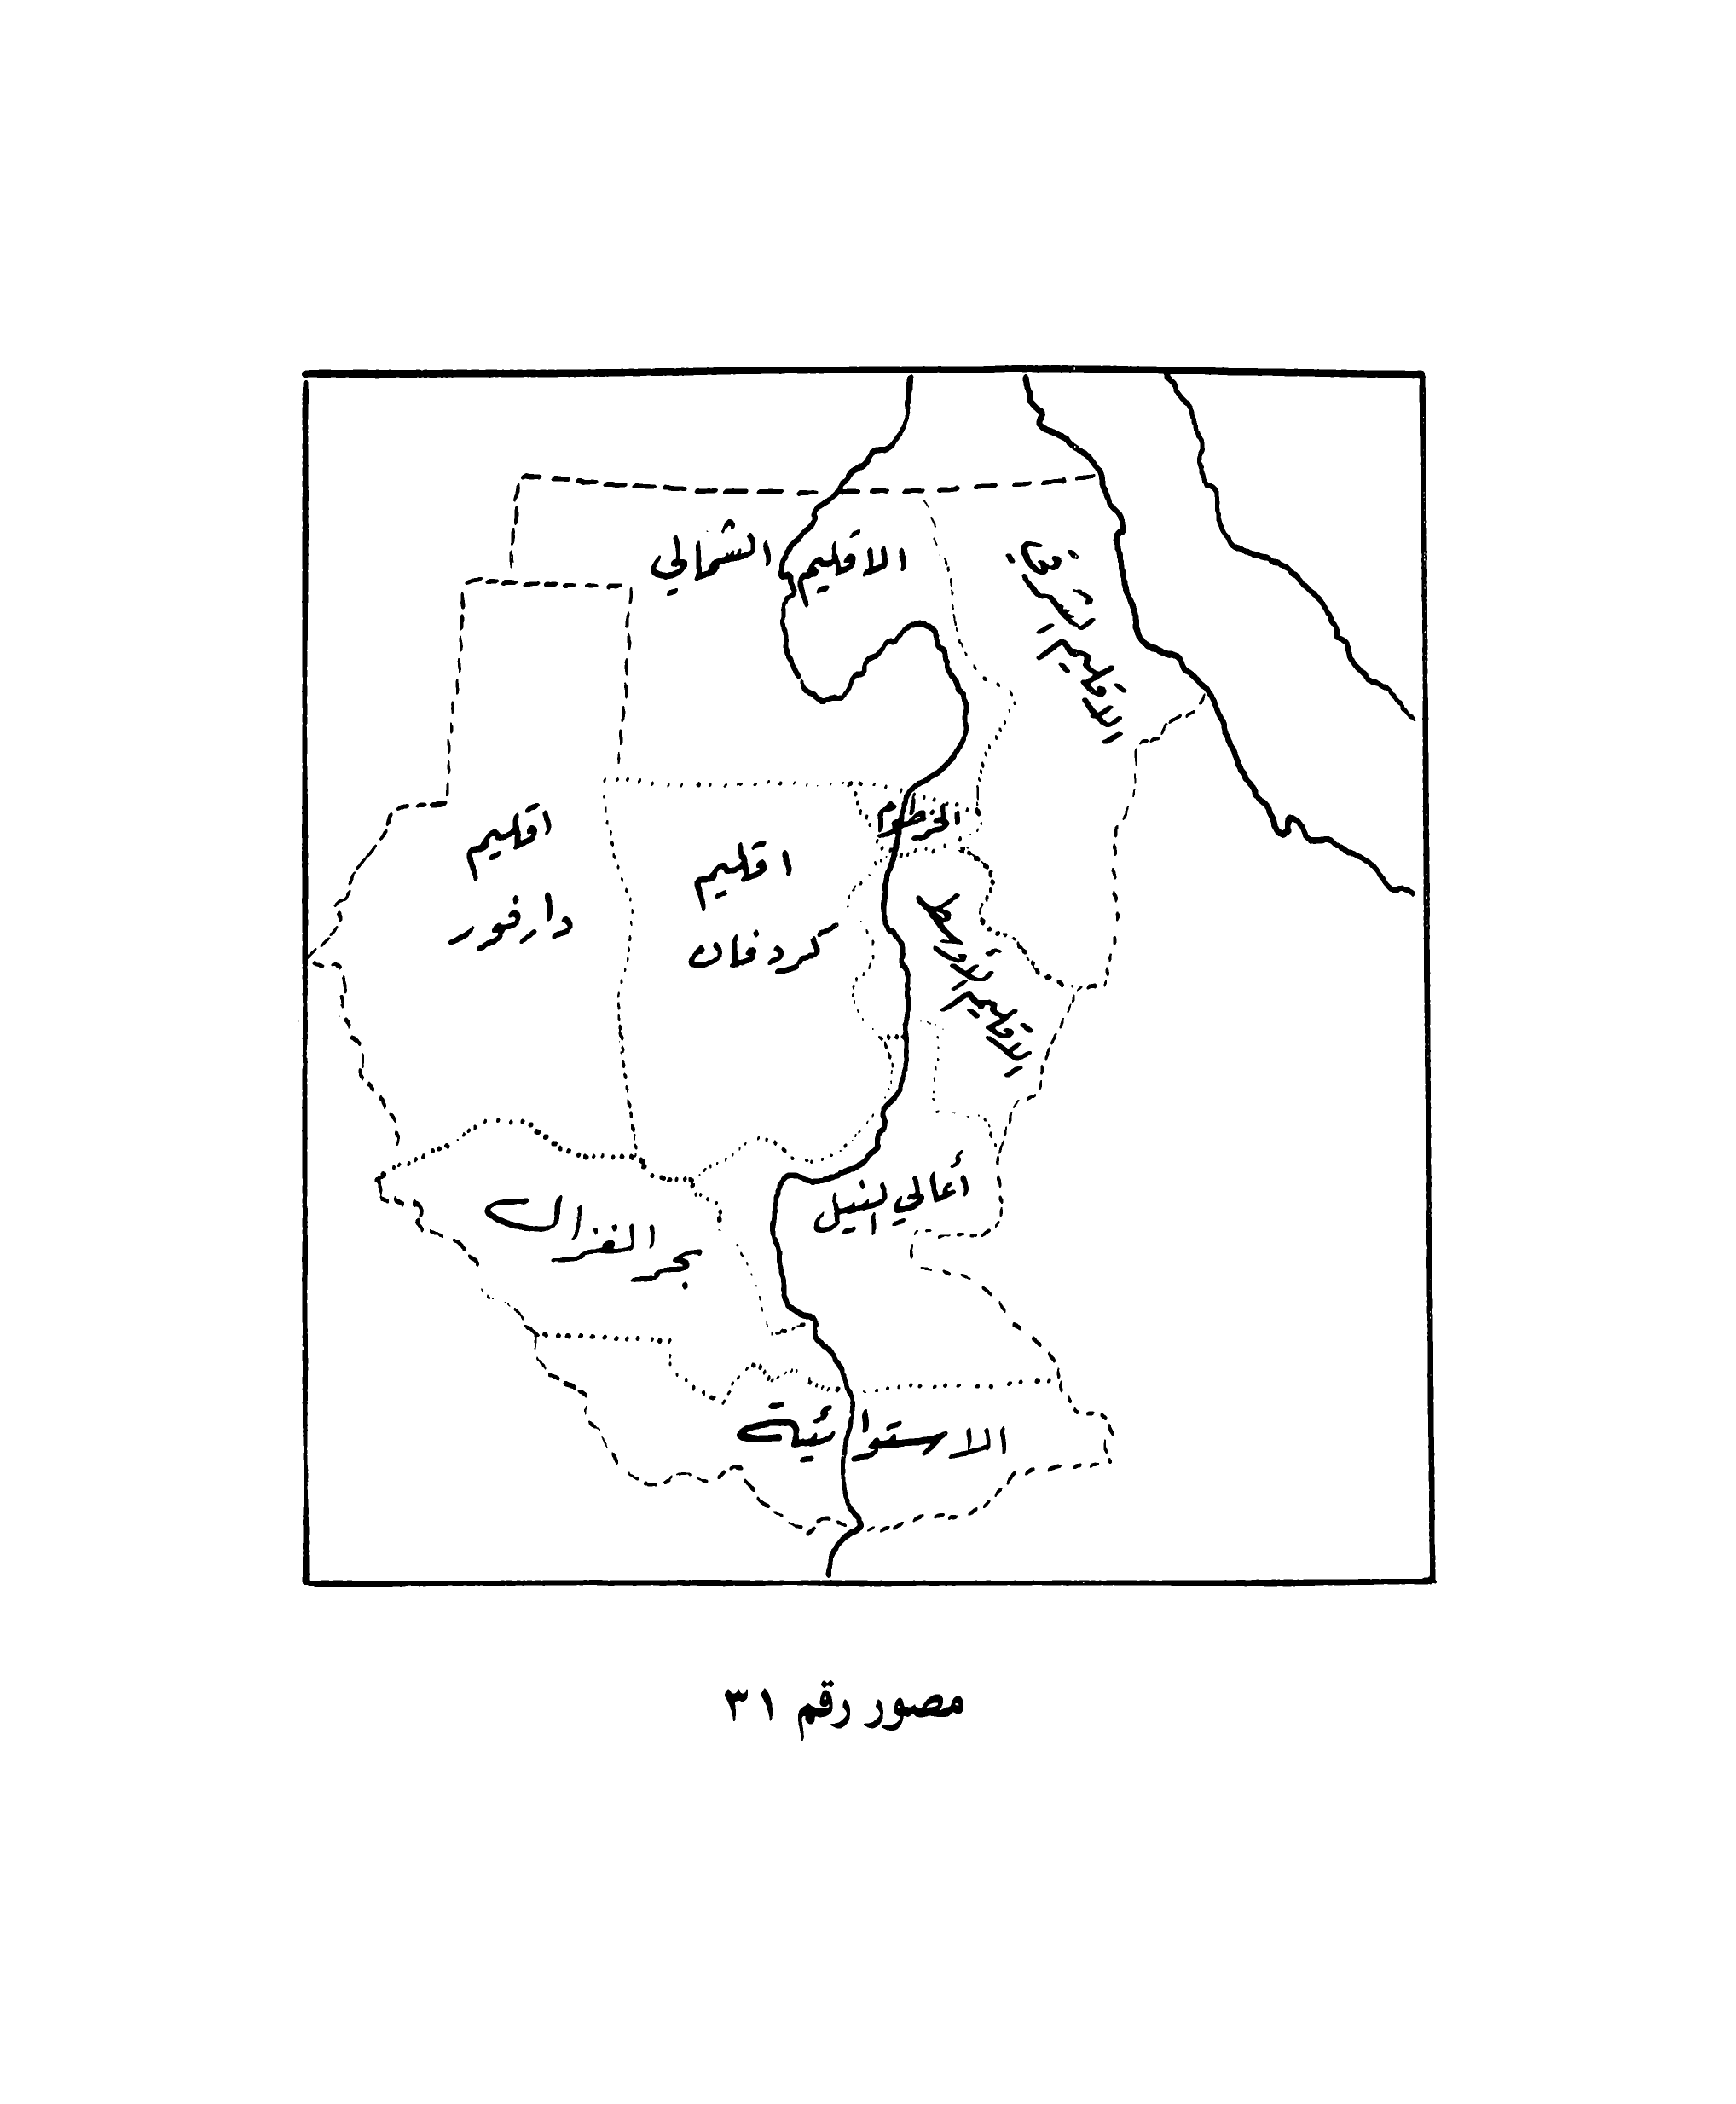 الاقليم الشمالي
الاقليم الشرقي
الخرطوم
اقليم
دارفور
اقليم
كردفان
الاقليم الأوسط
أعالي النيل
بحر الغزال
الاستوائية
مصور رقم ٣١